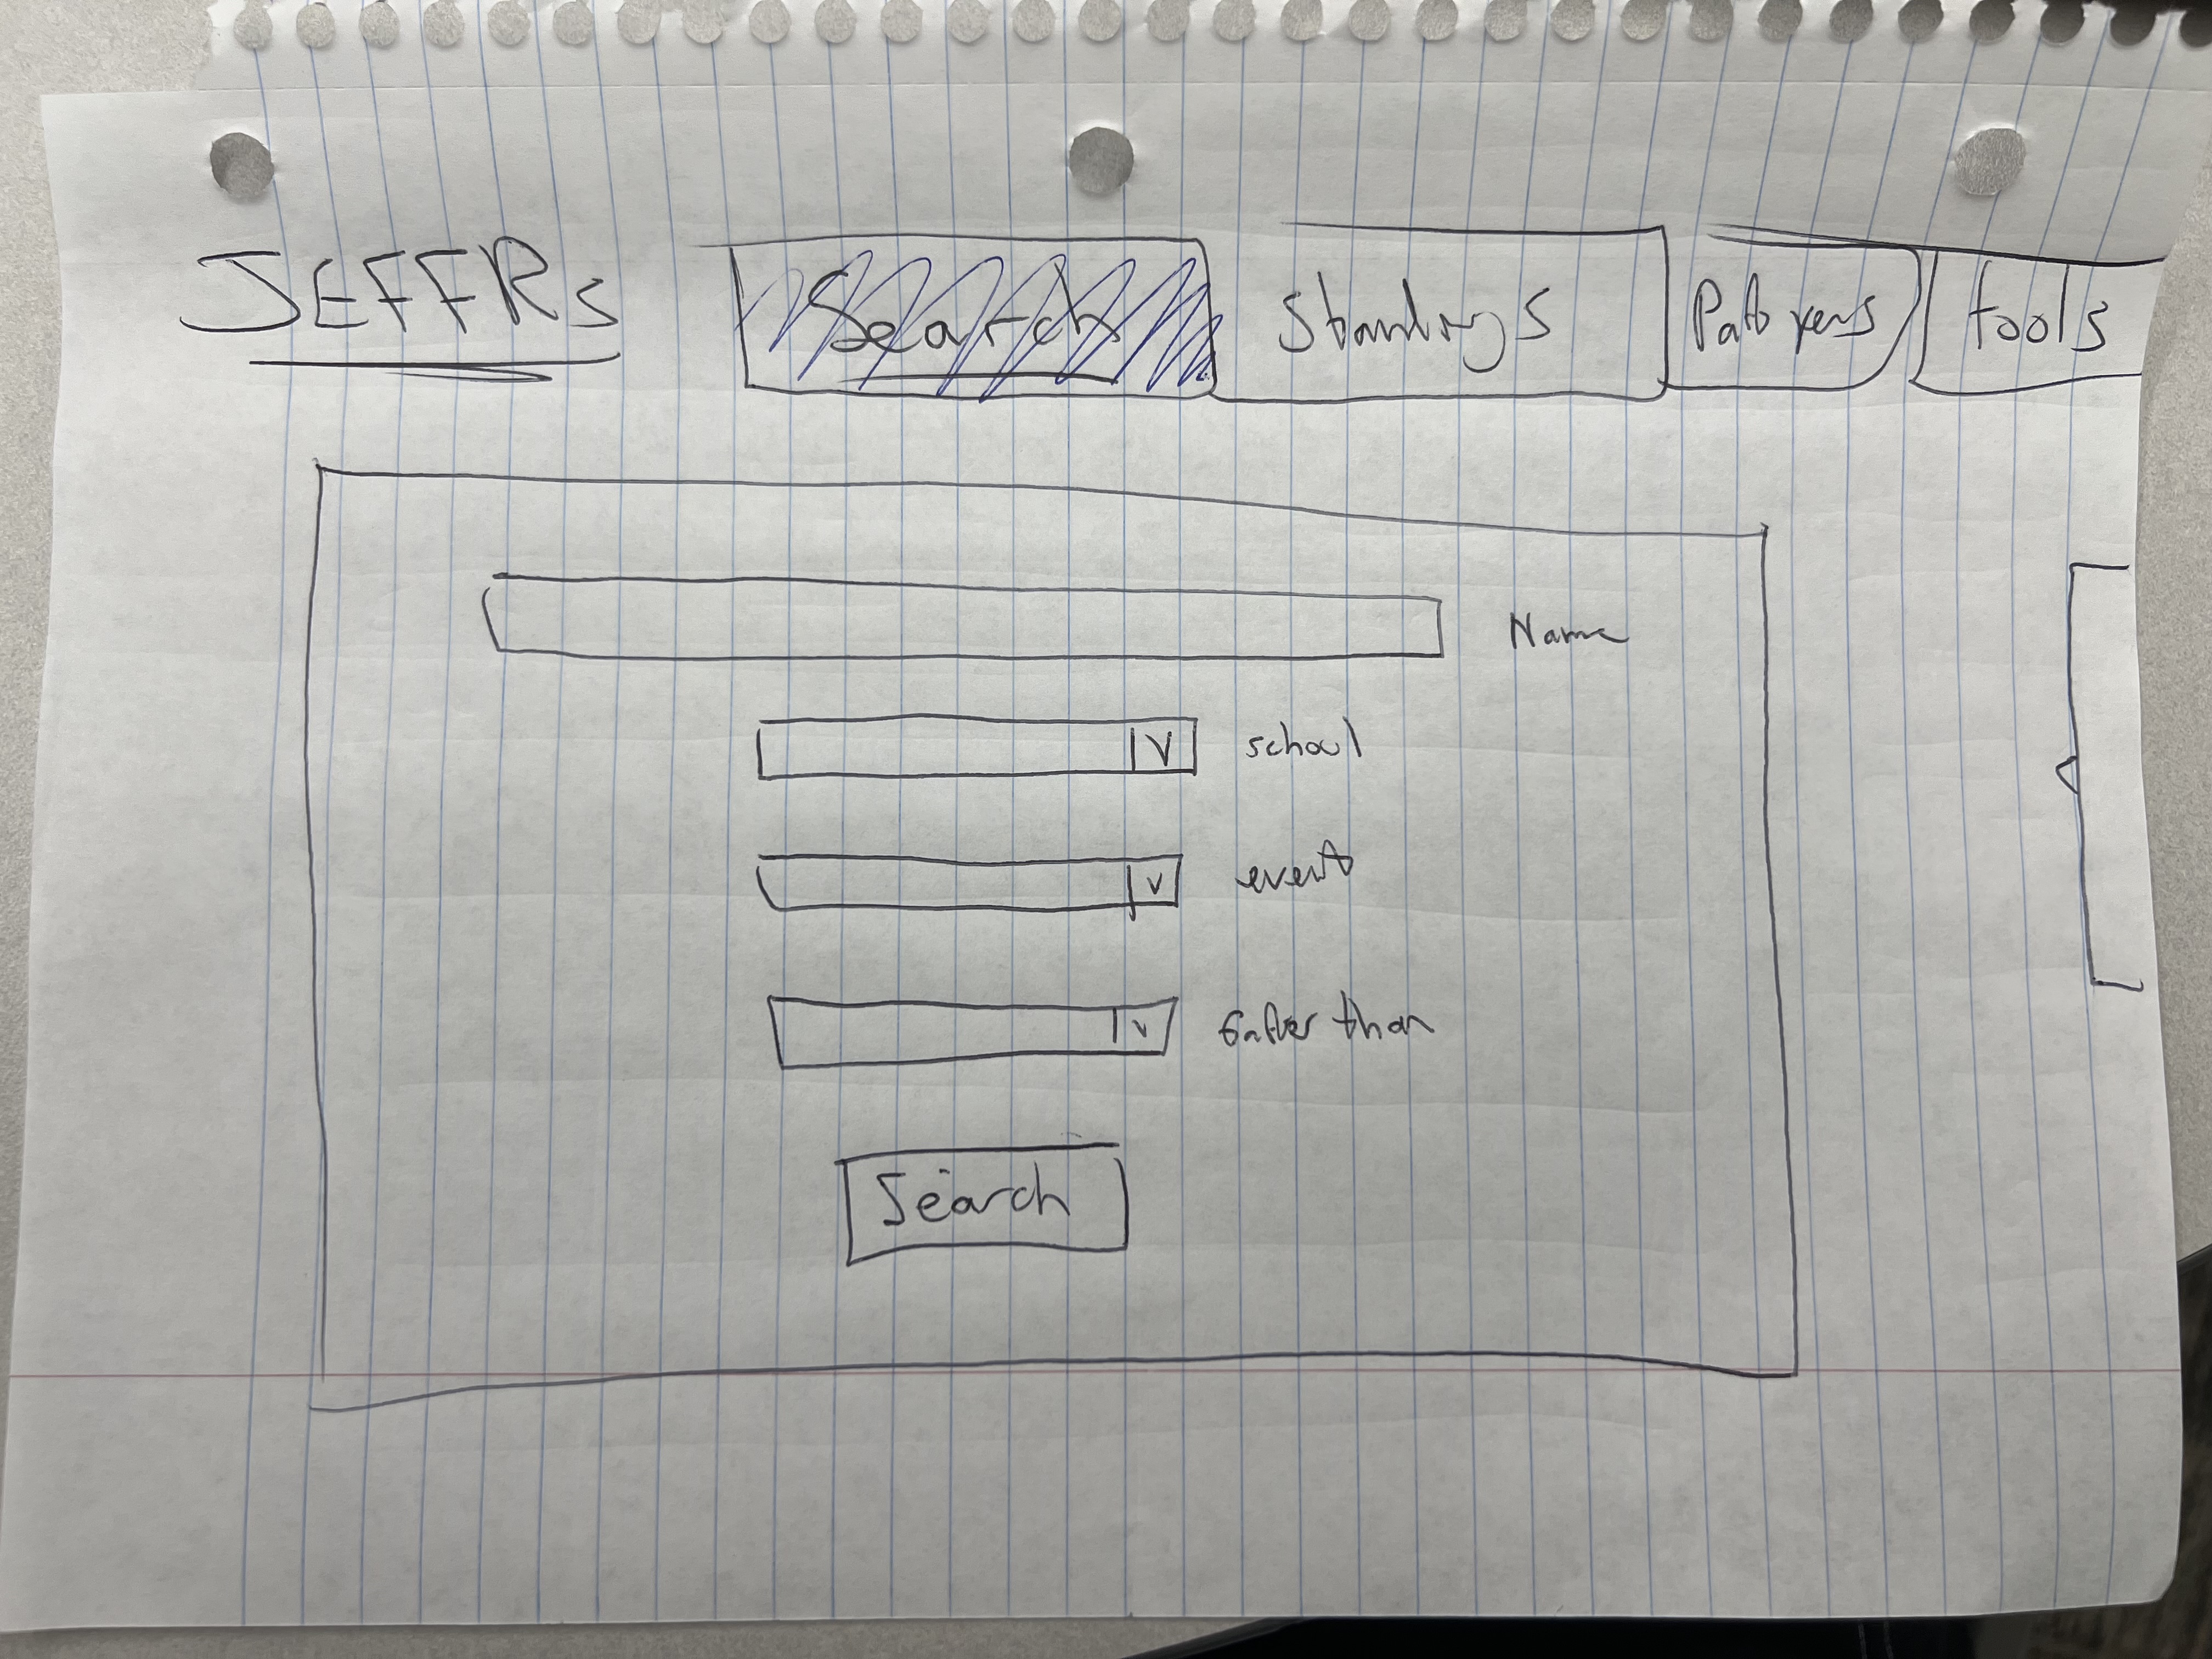 JEFFRS Search Standings Patterns tools
Name
V school
v event
v than
Search